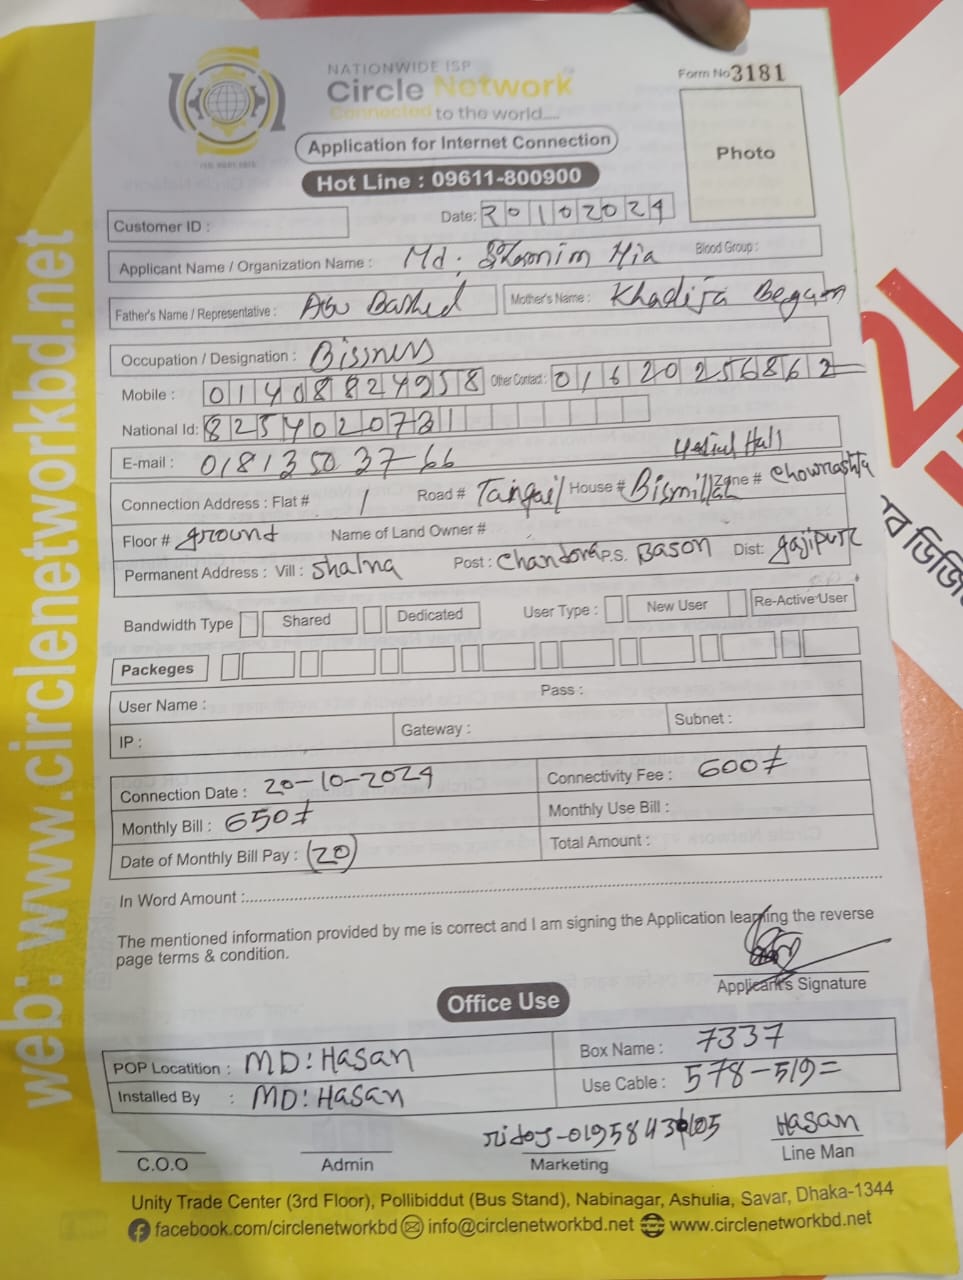 NATIONWIDE ISP
Circle Network
Connected to the world....
Form No 3181
Application for Internet Connection
Photo
Hot Line : 09611-800900
Customer ID :
Date: 20102024
Applicant Name / Organization Name : Md. Shamim Mia Blood Group :
Father's Name / Representative : Abu Mother's Name : Khadija Begam
Occupation / Designation : Bissness
Mobile : 01408824958 Other Contact : 01620256862
National Id: 8254020731
E-mail : 01813503766
Hall
Connection Address : Flat # 1 Road # Tangail House # Bismillah Zone # Chowrashta
Floor # ground Name of Land Owner #
Permanent Address : Vill : Shalna Post : Chandora P.S. Bason Dist: gajipur
Bandwidth Type Shared Dedicated User Type : New User Re-Active User
Packeges
User Name : Pass :
IP : Gateway : Subnet :
Connection Date : 20-10-2024 Connectivity Fee : 600/=
Monthly Bill : 650/= Monthly Use Bill :
Date of Monthly Bill Pay : (20) Total Amount :
In Word Amount :
The mentioned information provided by me is correct and I am signing the Application learning the reverse
page terms & condition.
Applicant's Signature
Office Use
POP Locatition : MD: Hasan Box Name : 7337
Installed By : MD: Hasan Use Cable : 578-519=
Hasan
C.O.O Admin Marketing Line Man
Unity Trade Center (3rd Floor), Pollibiddut (Bus Stand), Nabinagar, Ashulia, Savar, Dhaka-1344
facebook.com/circlenetworkbd info@circlenetworkbd.net www.circlenetworkbd.net
web: www.circlenetworkbd.net